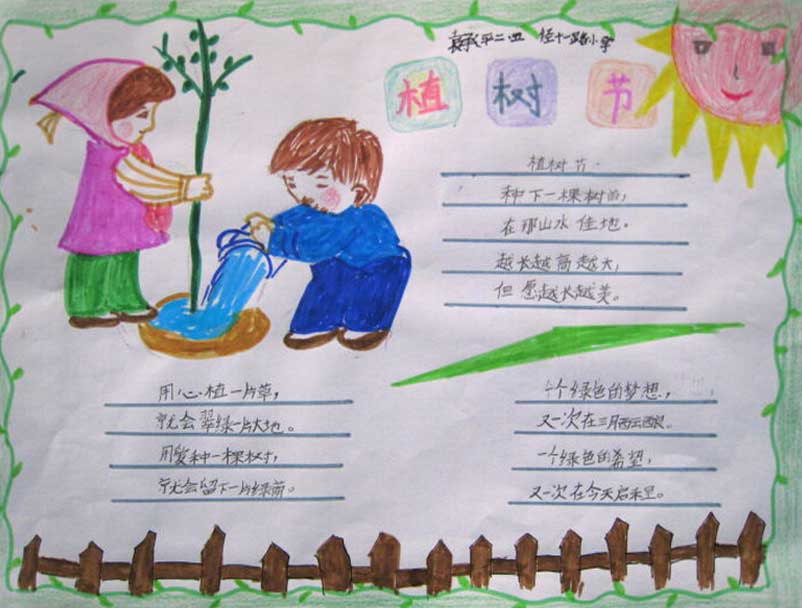 二四 经十一路小学
植树节
植树节
种下一棵树苗,
在那山水佳地。
越长越高越大,
但愿越长越美。
用心植一片草,
就会翠绿一片大地。
用爱种一棵树,
就会留下一片绿荫。
一个绿色的梦想,
又一次在三月酝酿.
一个绿色的希望,
又一次在今天启程。